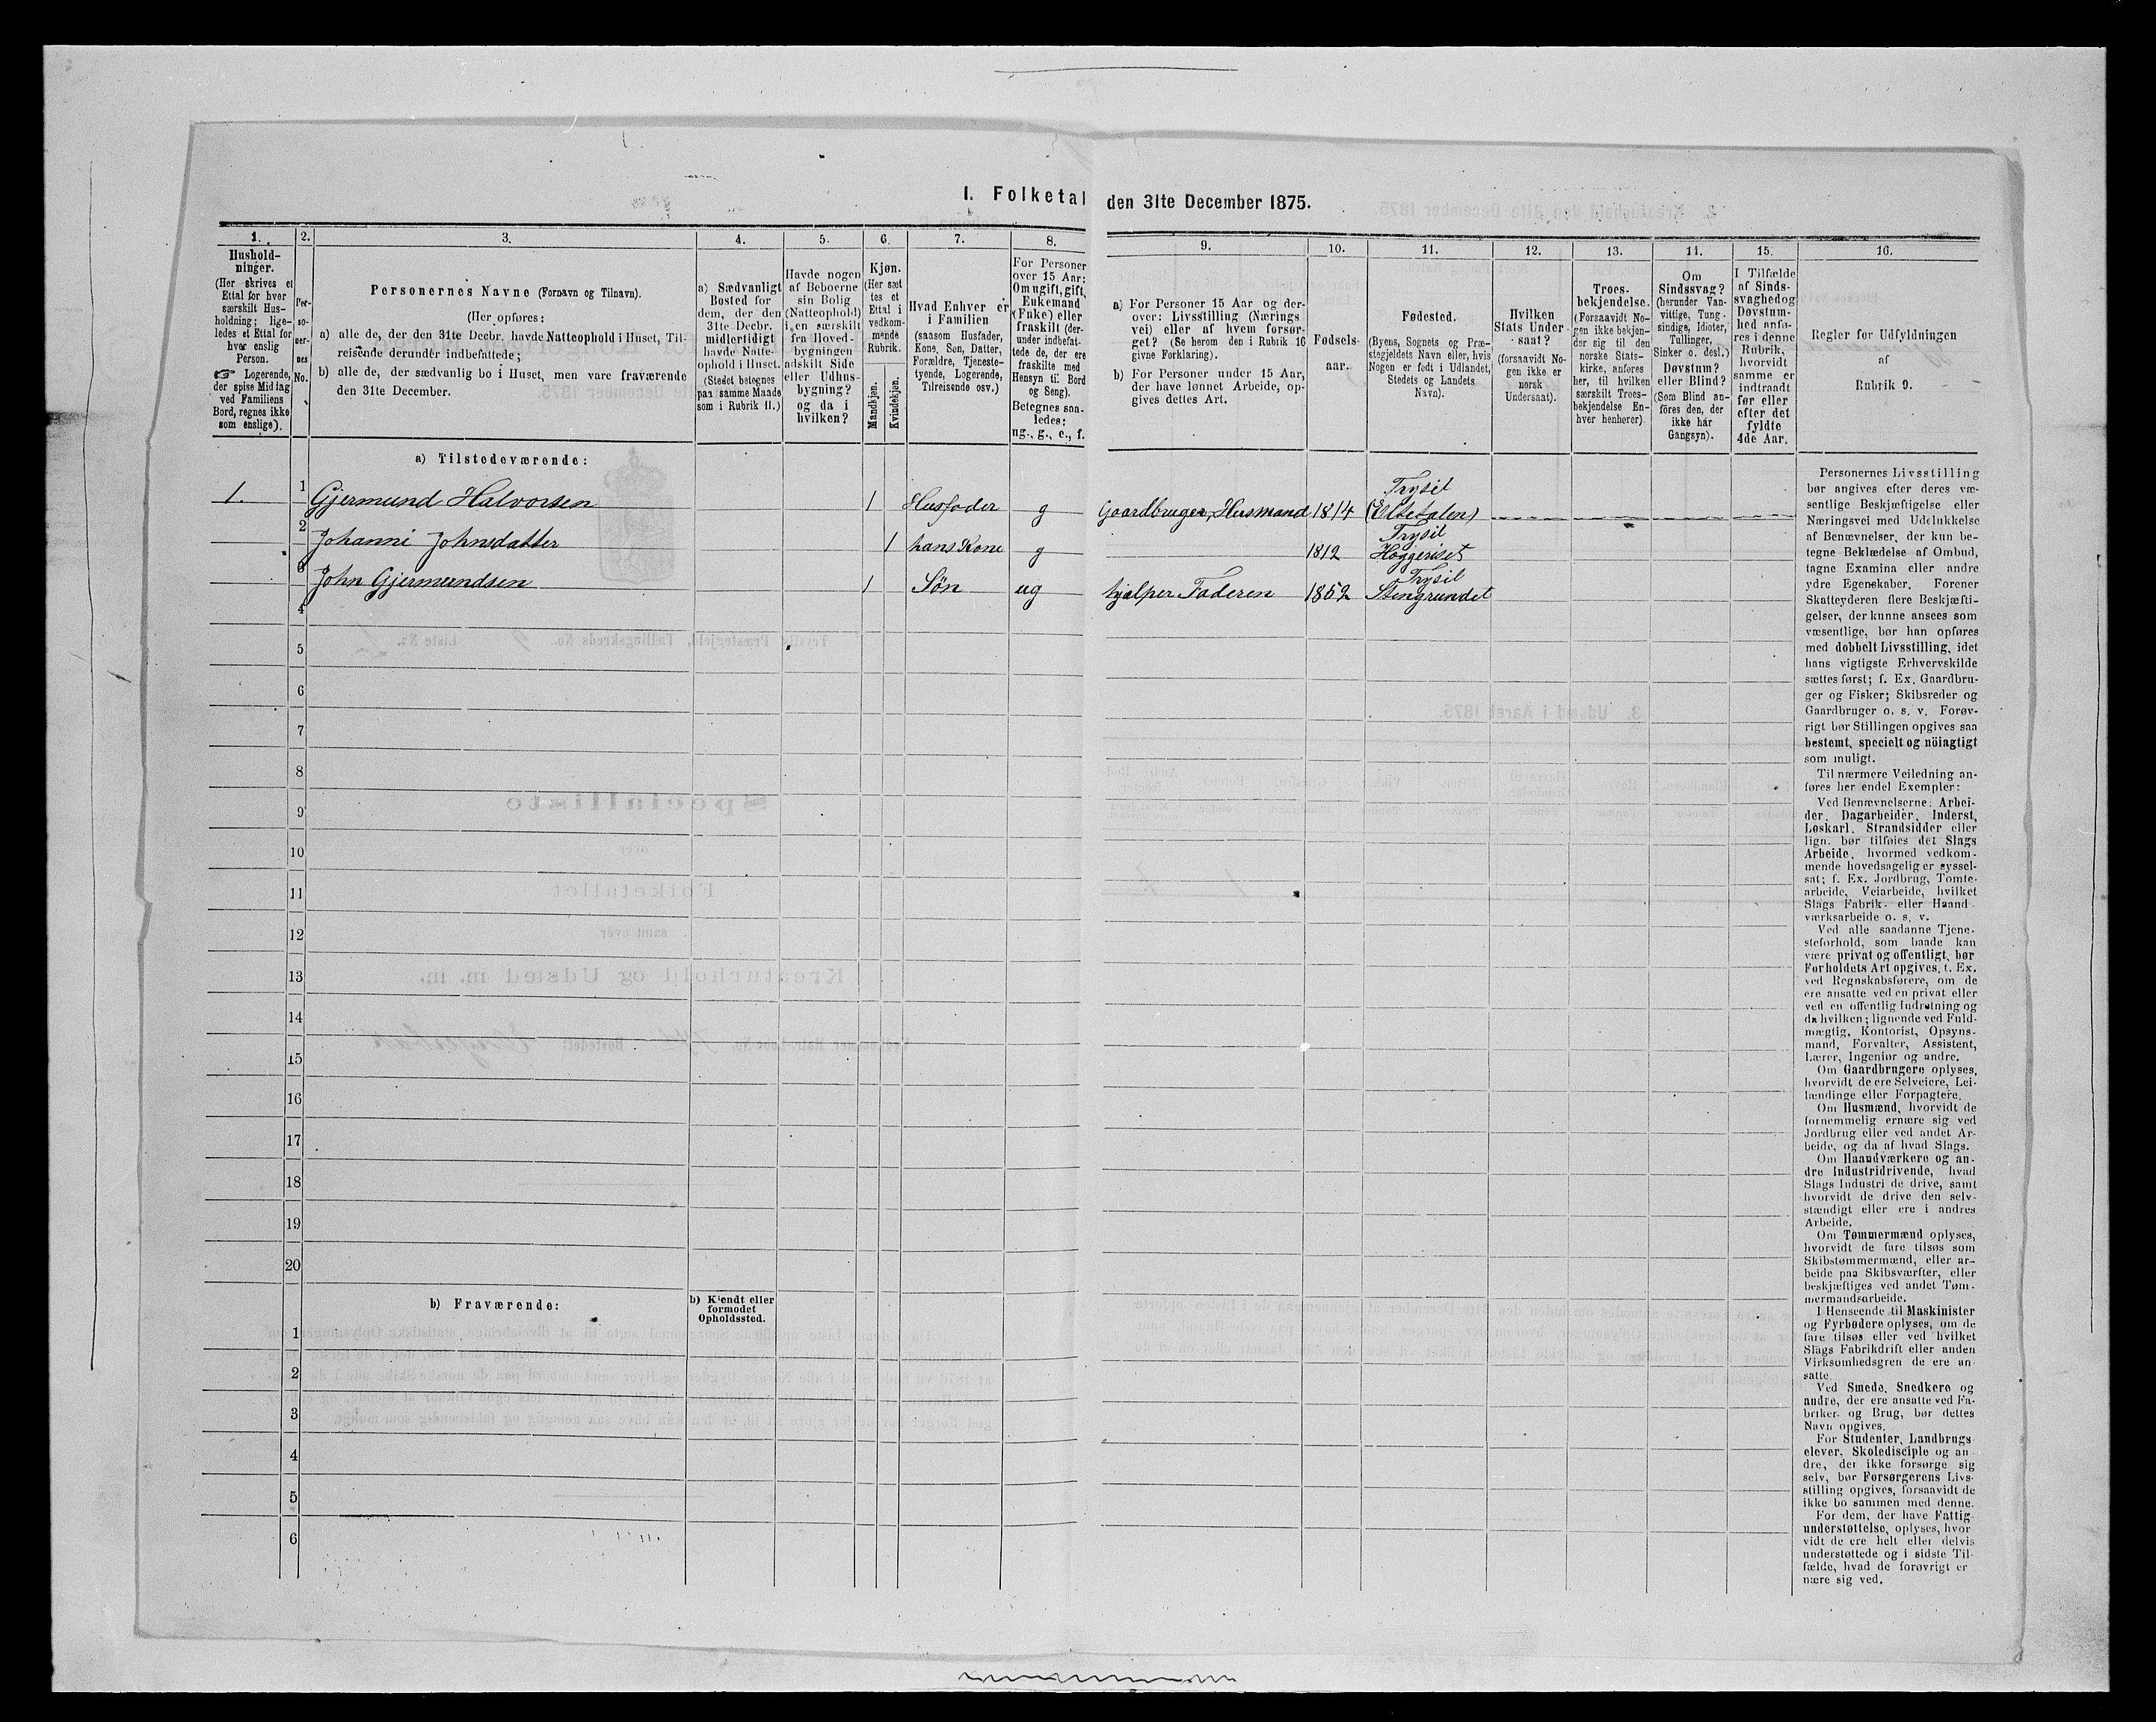 I. Folketal den 31te December 1875.
1.
Hushold-
ninger.
(Her skrives et
Ettal for hver
særskilt Hus-
holdning; lige-
ledes et Ettal for
hver enslig
Person.
☞ Logerende,
der spise Middag
ved Familiens
Bord, regnes ikke
som enslige).
2.
Per-
so-
ner-
nes
No.
3.
Personernes Navne (Fornavn og Tilnavn).
(Her opføres:
a) alle de, der den 31te Decbr. havde Natteophold i Huset, Til-
reisende derunder indbefattede;
b) alle de, der sædvanlig bo i Huset, men vare fraværende
den 31te December.
4.
a) Sædvanligt
Bosted for
dem, der den
31te Decbr.
midlertidigt
havde Natte-
ophold i Huset.
(Stedet betegnes
paa samme Maade
som i Rubrik 11.)
5.
Havde nogen
af Beboerne
sin Bolig
(Natteophold)
i en særskilt
fra Hoved-
bygningen
adskilt Side
eller Udhus-
bygning?
og da i
hvilken?
6.
Kjøn.
(Her sæt
tes et
Ettal i
vedkom-
mende
Rubrik.
Mandkjøn.
Kvindekjøn.
7.
Hvad Enhver er
i Familien
(saasom Husfader,
Kone, Søn, Datter,
Forældre, Tjeneste-
tyende, Logerende,
Tilreisende osv.)
8.
For Personer
over 15 Aar:
Om ugift, gift,
Enkemand
(Enke) eller
fraskilt (der-
under indbefat-
tede de, der ere
fraskilte med
Hensyn til Bord
og Seng).
Betegnes saa-
ledes:
ug., g., e., f.
9.
a) For Personer 15 Aar og der-
over: Livsstilling (Nærings
vei) eller af hvem forsør-
get? (Se herom den i Rubrik 16
givne Forklaring).
b) For Personer under 15 Aar,
der have lønnet Arbeide, op-
gives dettes Art.
10.
Fødsels-
aar.
11.
Fødested.
(Byens, Sognets og Præ-
stegjeldets Navn eller, hvis
Nogen er født i Udlandet,
Stedets og Landets
Navn).
12.
Hvilken
Stats Under-
saat?
(forsaavidt No-
gen ikke er
norsk
Undersaat).
13.
Troes-
bekjendelse.
(Forsaavidt No-
gen ikke bekjen-
der sig til den
norske Stats-
kirke, anføres
her, til hvilken
særskilt Troes-
bekjendelse En-
hver henhører).
14.
Om
Sindssvag?
(herunder Van-
vittige, Tung-
sindige, Idioter,
Tullinger,
Sinker o. desl.)
Døvstum?
eller Blind?
(Som Blind an-
føres den, der
ikke har
Gangsyn).
15.
I Tilfælde
af Sinds-
svaghed og
Døvstum-
hed anfø-
res i denne
Rubrik,
hvorvidt
samme er
indtraadt
før eller
efter det
fyldte
4de Aar.
16.
Regler for Udfyldningen
af
Rubrik 9.
a) Tilstedeværende:
1. 1 Gjermund Halvorsen 1 Husfader g Gaardbruger, Husmand 1814 Trysil (Eltdalen)
2 Johanne Johnsdatter 1 hans Kone g 1812 Trysil Høggeriset
3 John Gjermundsen 1 Søn ug hjelper Faderen 1852 Trysil Stengrundet
4
5
6
7
8
9
10
11
12
13
14
15
16
17
18
19
20
b) Fraværende:
b) Kjendt eller
formodet
Opholdssted.
1
2
3
4
5
6
Personernes Livsstilling
bør angives efter deres væ-
sentlige Beskjæftigelse eller
Næringsvei med Udelukkelse
af Benævnelser, der kun be-
tegne Beklædelse af Ombud,
tagne Examina eller andre
ydre Egenskaber. Forener
Skatteyderen flere Beskjæfti-
gelser, der kunne ansees som
væsentlige, bør han opføres
med dobbelt Livsstilling, idet
hans vigtigste Erhvervskilde
sættes først; f. Ex. Gaardbru-
ger og Fisker; Skibsreder og
Gaardbruger o. s. v. Forøv-
rigt bør Stillingen opgives saa
bestemt, specielt og nöiagtigt
som muligt.
Til nærmere Veiledning an-
føres her endel Exempler:
Ved Benævnelserne: Arbei-
der, Dagarbeider, Inderst,
Løskarl, Strandsidder eller
lign. bør tilføies det Slags
Arbeide, hvormed vedkom-
mende hovedsagelig er syssel-
sat; f. Ex. Jordbrug, Tomte-
arbeide, Veiarbeide, hvilket
Slags Fabrik- eller Haand
værksarbeide o. s. v.
Ved alle saadanne Tjene-
steforhold, som baade kan
være privat og offentligt, bør
Forholdets Art opgives, f. Ex.
ved Regnskabsførere, om de
ere ansatte ved en privat eller
ved en offentlig Indretning og
da hvilken; lignende ved Fuld-
mægtig, Kontorist, Opsyns-
mand, Forvalter, Assistent,
Lærer, Ingeniør og andre.
Om Gaardbrugere oplyses,
hvorvidt de ere Selveiere, Lei-
lændinge eller Forpagtere.
Om Husmænd, hvorvidt de
fornemmelig ernære sig ved
Jordbrug eller ved andet Ar-
beide, og da af hvad Slags.
Om Haandværkere og an-
dre Industridrivende, hvad
Slags Industri de drive, samt
hvorvidt de drive den selv-
stændigt eller ere i andres
Arbeide.
Om Tømmermænd oplyses,
hvorvidt de fare tilsøs som
Skibstømmermænd, eller ar-
beide paa Skibsværfter, eller
beskjæftiges ved andet Tøm-
mermandsarbeide.
I Henseende til Maskinister
og Fyrbødere oplyses, om de
fare tilsøs eller ved hvilket
Slags Fabrikdrift eller anden
Virksomhedsgren de ere an-
satte.
Ved Smede, Snedkere og
andre, der ere ansatte ved Fa-
briker og Brug, bør dettes
Navn opgives.
For Studenter, Landbrugs
elever, Skoledisciple og an-
dre, der ikke forsørge sig
selv, bør Forsørgerens Livs-
stilling opgives, forsaavidt de
ikke bo sammen med denne.
For dem, der have Fattig-
understøttelse, oplyses, hvor-
vidt de ere helt eller delvis
understøttede og i sidste Til-
fælde, hvad de forøvrigt er
nære sig ved.